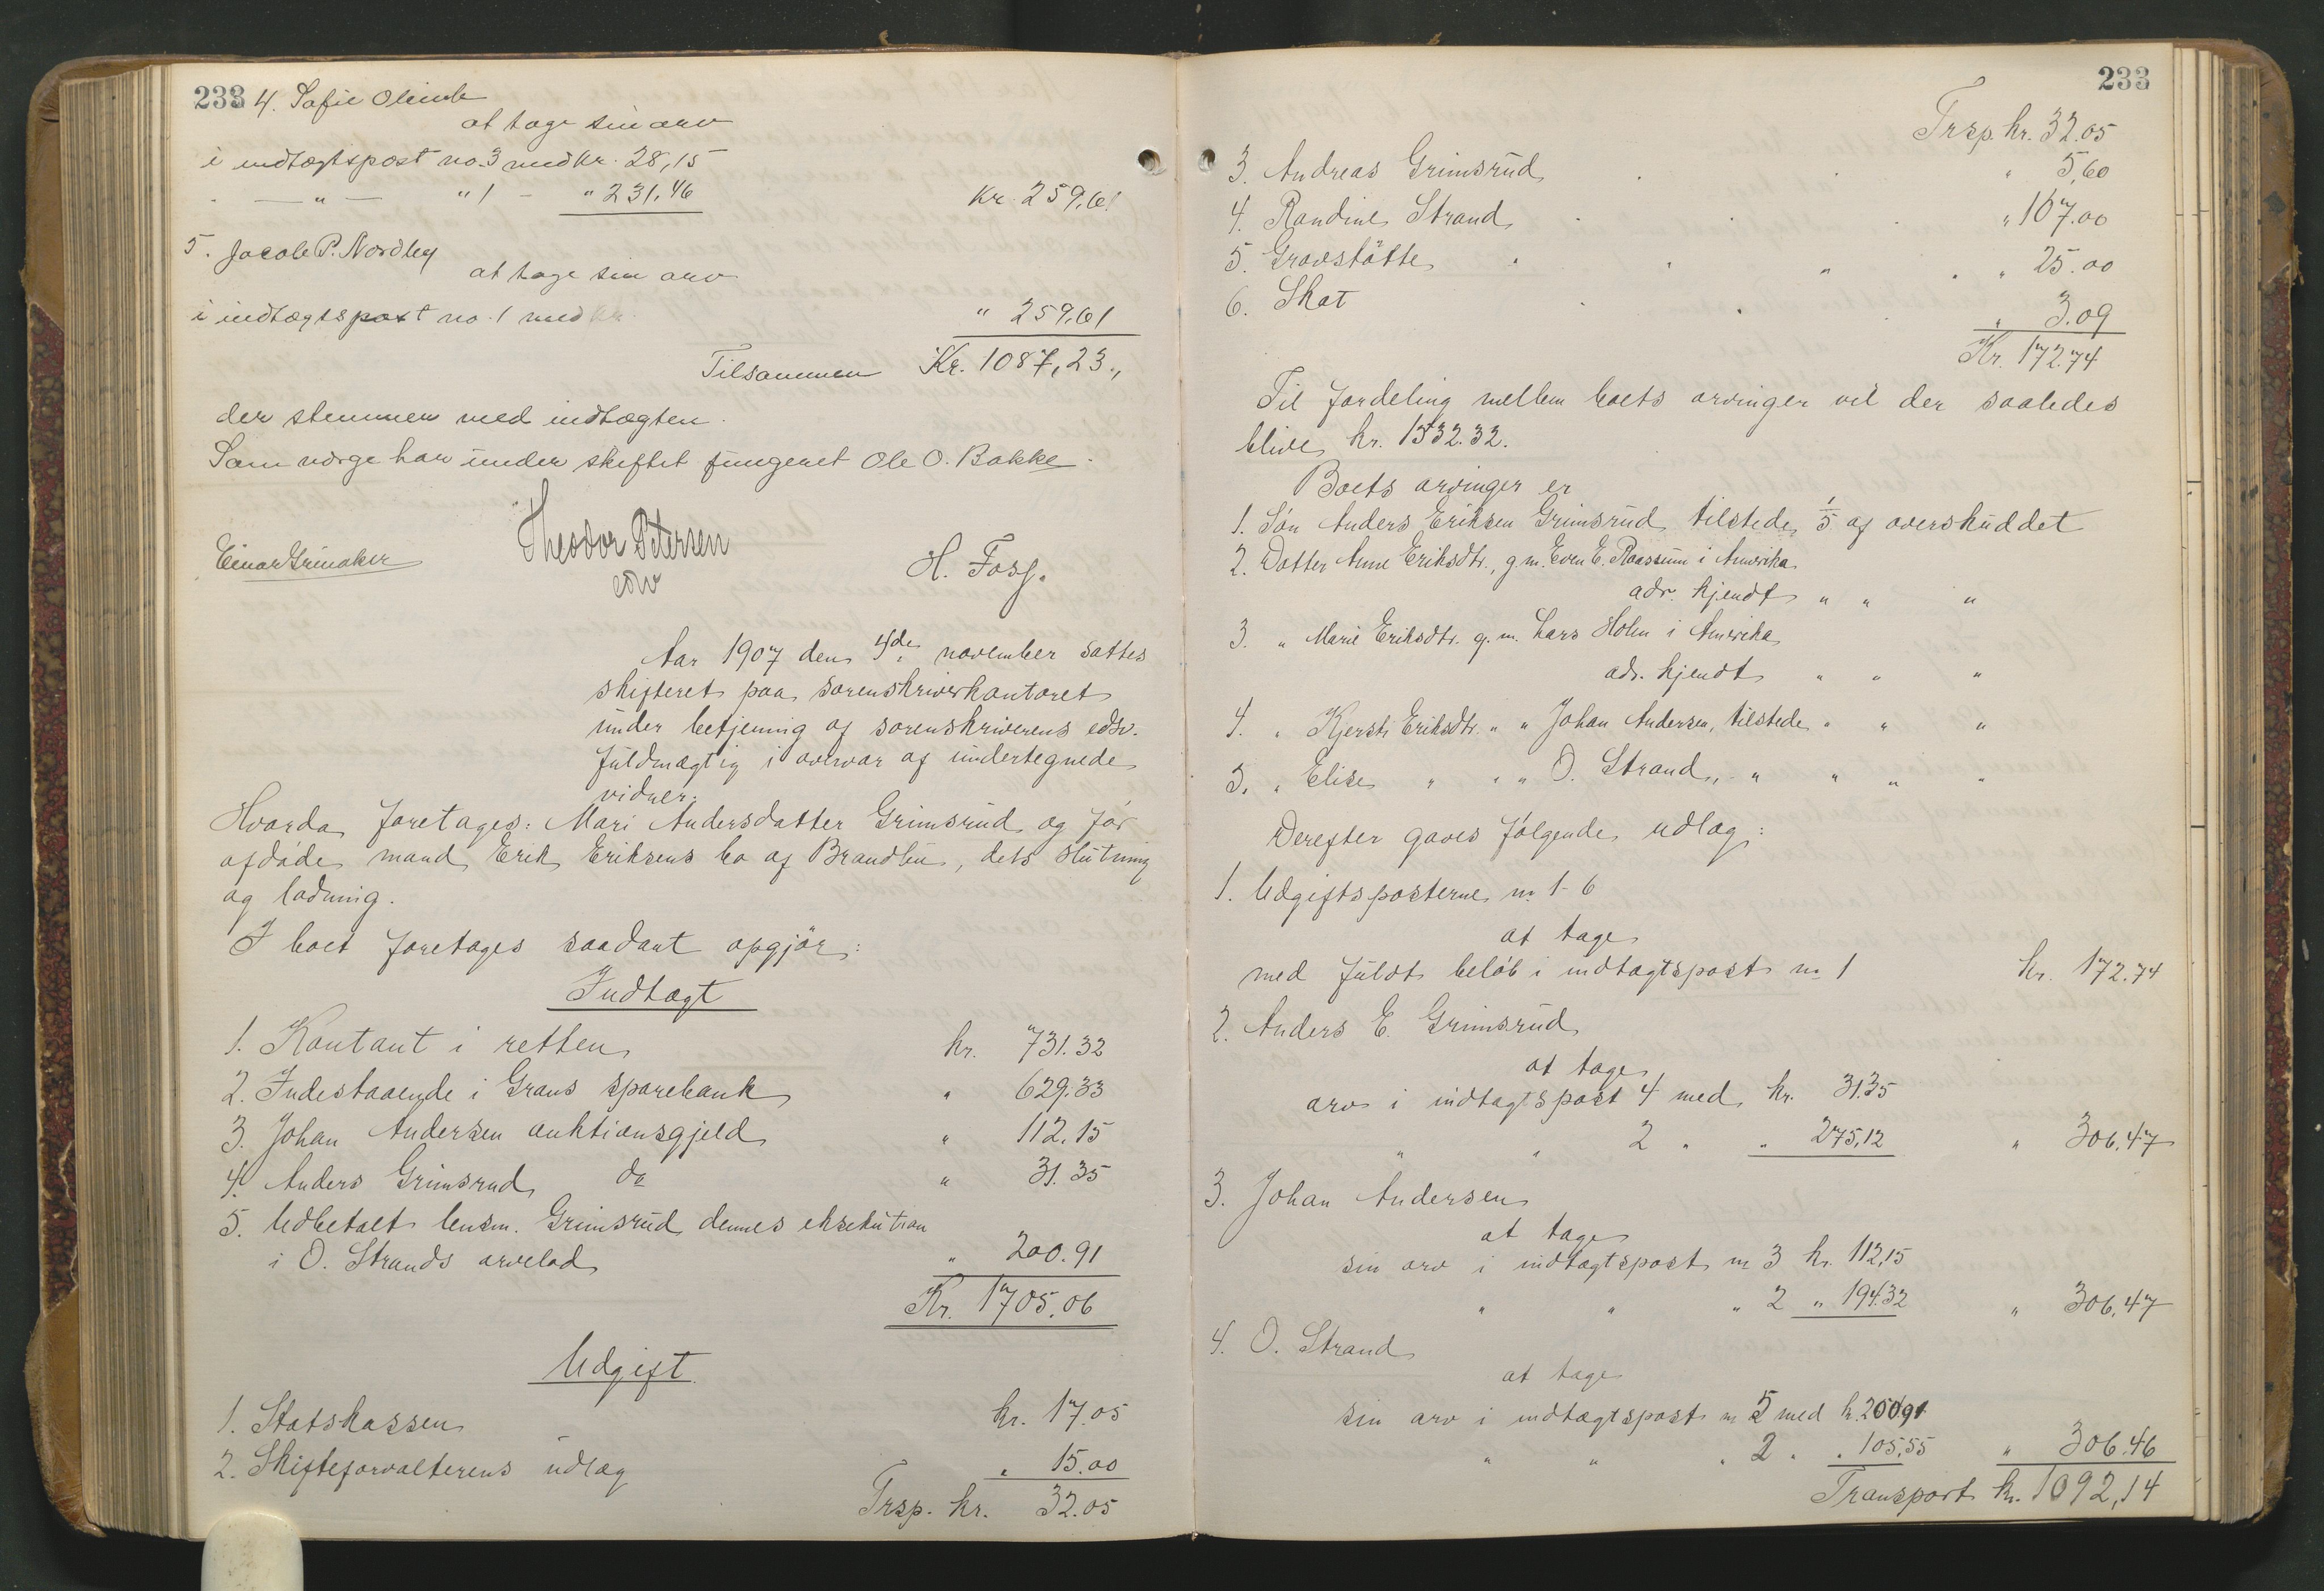 233
4. Sofie Olinde
at tage sin arv
i indtægtspost no. 3 med kr. 28,15
" — " — " 1 - " 231,46 kr. 259,61
5. Jacob P. Nordby
at tage sin arv
i indtægtspost no. 1 med kr. " 259,61
Tilsammen Kr. 1087,23.,
der stemmer med indtægten.
Som værge har under skiftet fungeret Ole O. Bakke.
Einar Grinaker Theodor Petersen H. Foss.
edsv
Aar 1907 den 4de november sattes
skifteret paa sorenskriverkontoret
under betjening af sorenskriverens edsv.
fuldmægtig i overvær af undertegnede
vidner:
Hvorda foretages: Mari Andersdatter Grimsrud og før
afdøde mand Erik Eriksens bo af Brandbu, dets slutning
og lodning.
I boet foretages saadant opgjør:
Indtægt
1. Kontant i retten kr. 731.32
2. Indestaaende i Grans sparebank " 629.33
3. Johan Andersen auktionsgjeld " 112.15
4. Anders Grimsrud do " 31.35
5. Udbetalt lensm. Grimsrud dennes eksekution
i O. Strands arvelod " 200.91
Kr. 1705.06
Udgift
1. Statskassen kr. 17.05
2. Skifteforvalterens udlæg " 15.00
Trsp. kr. 32.05
233
Trsp. kr. 32.05
3. Andreas Grimsrud " 5,60
4. Randine Strand " 107.00
5. Gravstøtte " 25.00
6. Skat " 3.09
Kr. 172.74
Til fordeling mellem boets arvinger vil der saaledes
blive kr. 1532.32.
Boets arvinger er
1. Søn Anders Eriksen Grimsrud tilstede, 1/5 af overskuddet
2. Datter Anne Eriksdtr., g. m. Even E. Raassum i Amerika
adr. kjendt " " "
3. " Marie Eriksdtr. g. m. Lars Holm i Amerika
adr. kjendt " " "
4. " Kjersti Eriksdtr. " " Johan Andersen, tilstede " " "
5. " Elise " " " O. Strand, " " " "
Derefter gaves følgende udlæg:
1. Udgiftsposterne no 1-6
at tage
med fuldt beløb i indtægtspost no 1 kr. 172.74
2. Anders E. Grimsrud
at tage
arv i indtægtspost 4 med kr. 31.35
" " 2 " " 275,12 " 306,47
3. Johan Andersen
at tage
sin arv i indtægtspost no 3 kr. 112,15
" " " 2 " 194.32 " 306,47
4. O. Strand
at tage
sin arv i indtægtspost no 5 med kr. 200,91
" " " 2 " " 105.55 " 306.46
Transport kr. 1092,14